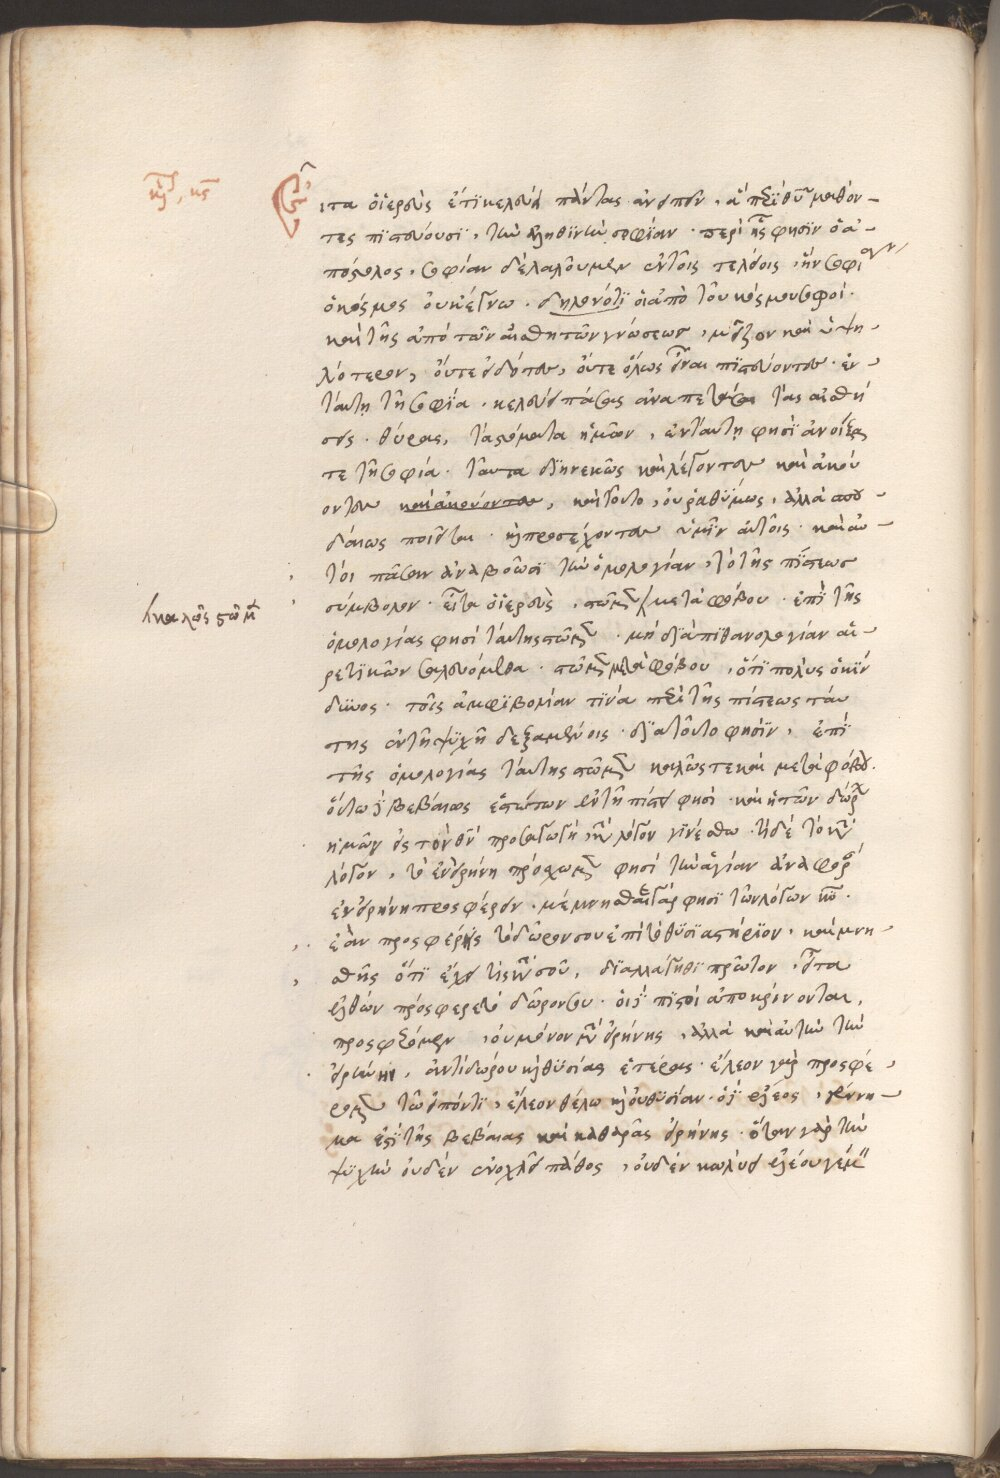 κεφ κς
Εἶτα ὁ ἱερεὺς ἔτι κελεύει πάντας ἀνειπεῖν, ἃ περὶ θεοῦ μαθόν-
τες πιστεύουσι, τὴν ἀληθινὴν σοφίαν. περὶ ἧς φησὶν ὁ ἀ-
πόστολος, σοφίαν δὲ λαλοῦμεν ἐν τοῖς τελείοις, ἣν σοφίαν
ὁ κόσμος οὐκ ἔγνω. δηλονότι οἱ ἀπὸ τοῦ κόσμου σοφοί.
καὶ τῆς ἀπὸ τῶν αἰσθητῶν γνώσεως, μεῖζον καὶ ὑψη-
λότερον, οὔτε εἰδότων, οὔτε ὅλως εἶναι πιστευόντων. ἐν
ταύτη τῆ σοφία. κελεύει πάσας ἀναπετάσαι τὰς αἰσθή
σεις. θύρας, τὰ στόματα ἡμῶν, ἐν ταύτη φησὶ ἀνοίξα
τε τῆ σοφία. ταῦτα διηνεκῶς καὶ λέγοντων καὶ ἀκου
οντων καὶ ἀκουόντων, καὶ τοῦτο, οὐ ῥαθύμως, ἀλλὰ σπου-
δαίως ποιεῖσθαι. καὶ προσεχόντων ὑμῖν αὐτοῖς. καὶ αὐ-
τοὶ πᾶσαν ἀναβοῶσι τὴν ὁμολογίαν, τὸ τῆς πίστεως
σύμβολον. εἶτα ὁ ἱερεὺς, στῶμεν μετὰ φόβου. ἐπὶ τῆς
καλῶς στῶμεν
ὁμολογίας φησὶ ταύτης στῶμεν. μὴ διὰ πιθανολογίαν αἱ-
ρετικῶν σαλευόμεθα. στῶμεν μετὰ φόβου, ὅτι πολὺς ὁ κίν
δυνος. τοῖς ἀμφιβολίαν τινὰ περὶ τῆς πίστεως ταύ
της ἐν τῆ ψυχῆ δεξαμένοις. διὰ τοῦτο φησὶν, ἐπὶ
τῆς ὁμολογίας ταύτης στῶμεν καλῶς τε καὶ μετὰ φόβου.
οὕτω δὲ βεβαίως ἑστώτων ἐν τῆ πίστει φησὶ. καὶ ἡ τῶν δώρων
ἡμῶν εἰς τὸν θεὸν προσαγωγὴ λόγον γινέσθω. τί δὲ τὸ
λόγον, τὸ ἐν εἰρήνη πρόσχωμεν φησὶ τὴν ἁγίαν ἀναφορὰν
ἐν εἰρήνη προσφέρειν. μέμνησθαι γάρ φησι τῶν λόγων
ἐὰν προσφέρης τὸ δῶρον σου ἐπὶ τὸ θυσιαστήριον, καὶ μνη
σθῆς ὅτι ἔχει τὶς κατὰ σοῦ, διαλλάγηθι πρῶτον, εἶτα
ἐλθὼν πρόσφερε τὸ δῶρον σου. οἱ δὲ πιστοὶ ἀποκρίνονται,
προσφέρομεν, οὐ μόνον μετ' εἰρήνης, ἀλλὰ καὶ αὐτὴν τὴν
εἰρήνην, ἀντὶ δώρου καὶ θυσίας ἑτέρας. ἔλεον γὰρ προσφέ
ρομεν τῶ εἰπόντι, ἔλεον θέλω καὶ οὐ θυσίαν. ὁ δὲ ἔλεος, γέννη-
μα ἐστὶ τῆς βεβαίας καὶ καθαρᾶς εἰρήνης. ὅταν γὰρ τὴν
ψυχὴν οὐδὲν ἐνοχλεῖ πάθος, οὐδὲν κωλύει ἐλέου γέμ